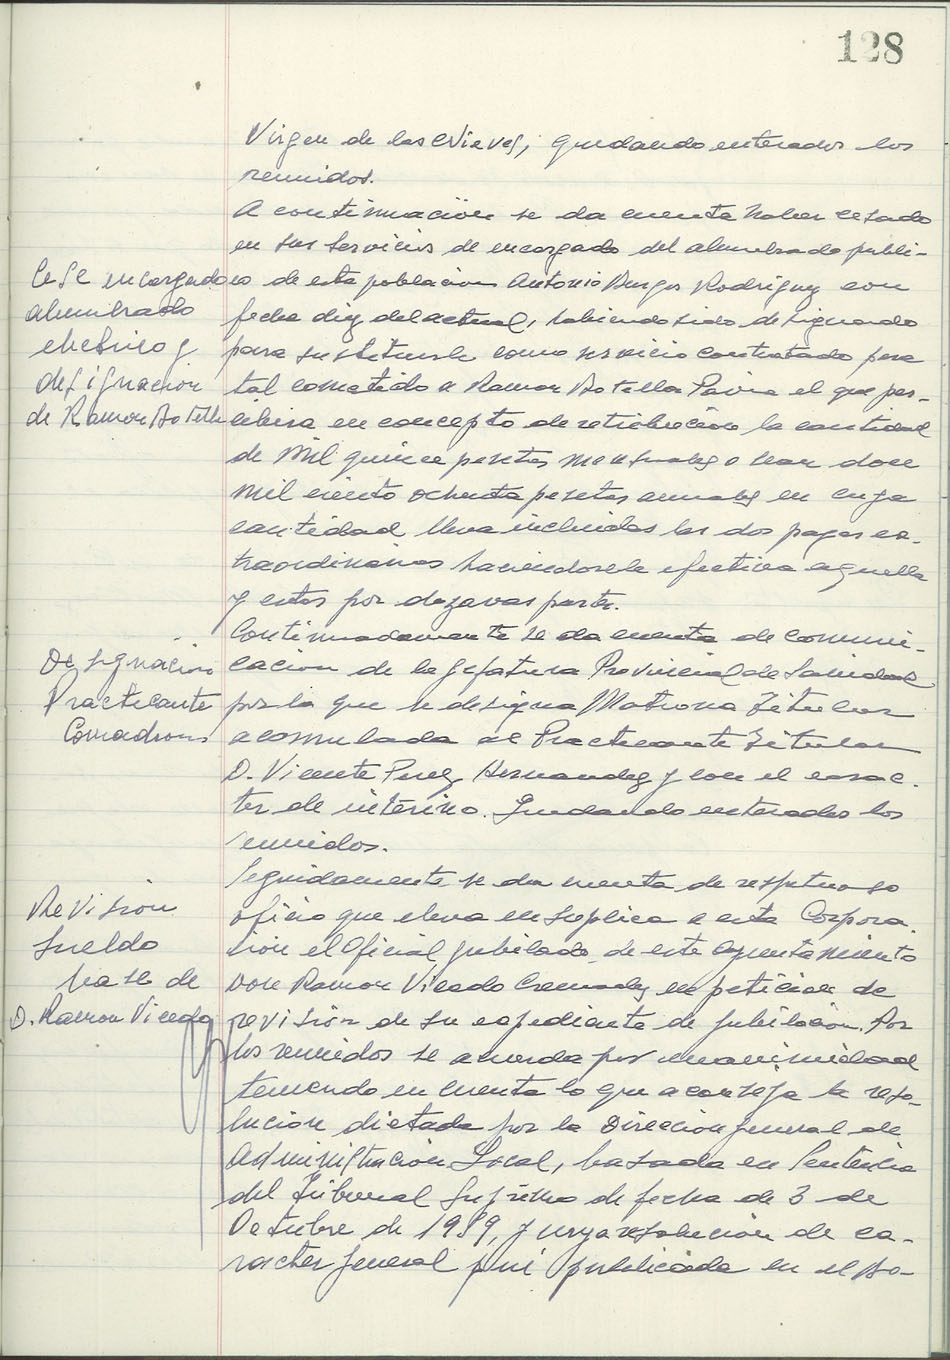 128
Virgen de las Nieves, quedando enterados los
reunidos.
A continuación se da cuenta haber cesado
en sus servicios de encargado del alumbrado publi-
Cese encargado
alumbrado
electrico y
designacion
de Ramon Botella
co de esta poblacion Antonio Burgos Rodriguez con
fecha diez del actual, habiendo sido designado
para sustituirle como servicio contratado para
tal cometido a Ramon Botella Pavia el que per-
cibira en concepto de retribución la cantidad
de mil quince pesetas mensuales o sean doce
mil ciento ochenta pesetas anuales en cuya
cantidad lleva incluidas las dos pagas ex-
traordinarias haciendosele efectiva aquella
y estas por dozavas partes.
Continuadamente se da cuenta de comuni-
Designación
Practicante
Comadrona
cacion de la Jefatura Provincial de Sanidad
por la que se designa Matrona Titular
acomulada al Practicante Titular
D. Vicente Perez Hernandez y con el carac-
ter de interino. Quedando enterados los
reunidos.
Seguidamente se da cuenta de respetuoso
Revision
sueldo
base de
D. Ramon Vicedo
oficio que eleva en suplica a esta Corpora-
cion el Oficial jubilado de este Ayuntamiento
Don Ramon Vicedo Cremades en peticion de
revisión de su expediente de jubilacion. Por
los reunidos se acuerda por unanimidad
teniendo en cuenta lo que aconseja la reso-
lución dictada por la Direccion general de
Administracion Local, basada en Sentencia
del Tribunal Supremo de fecha de 3 de
Octubre de 1959, y cuya resolución de ca-
racter general fué publicada en el Bo-